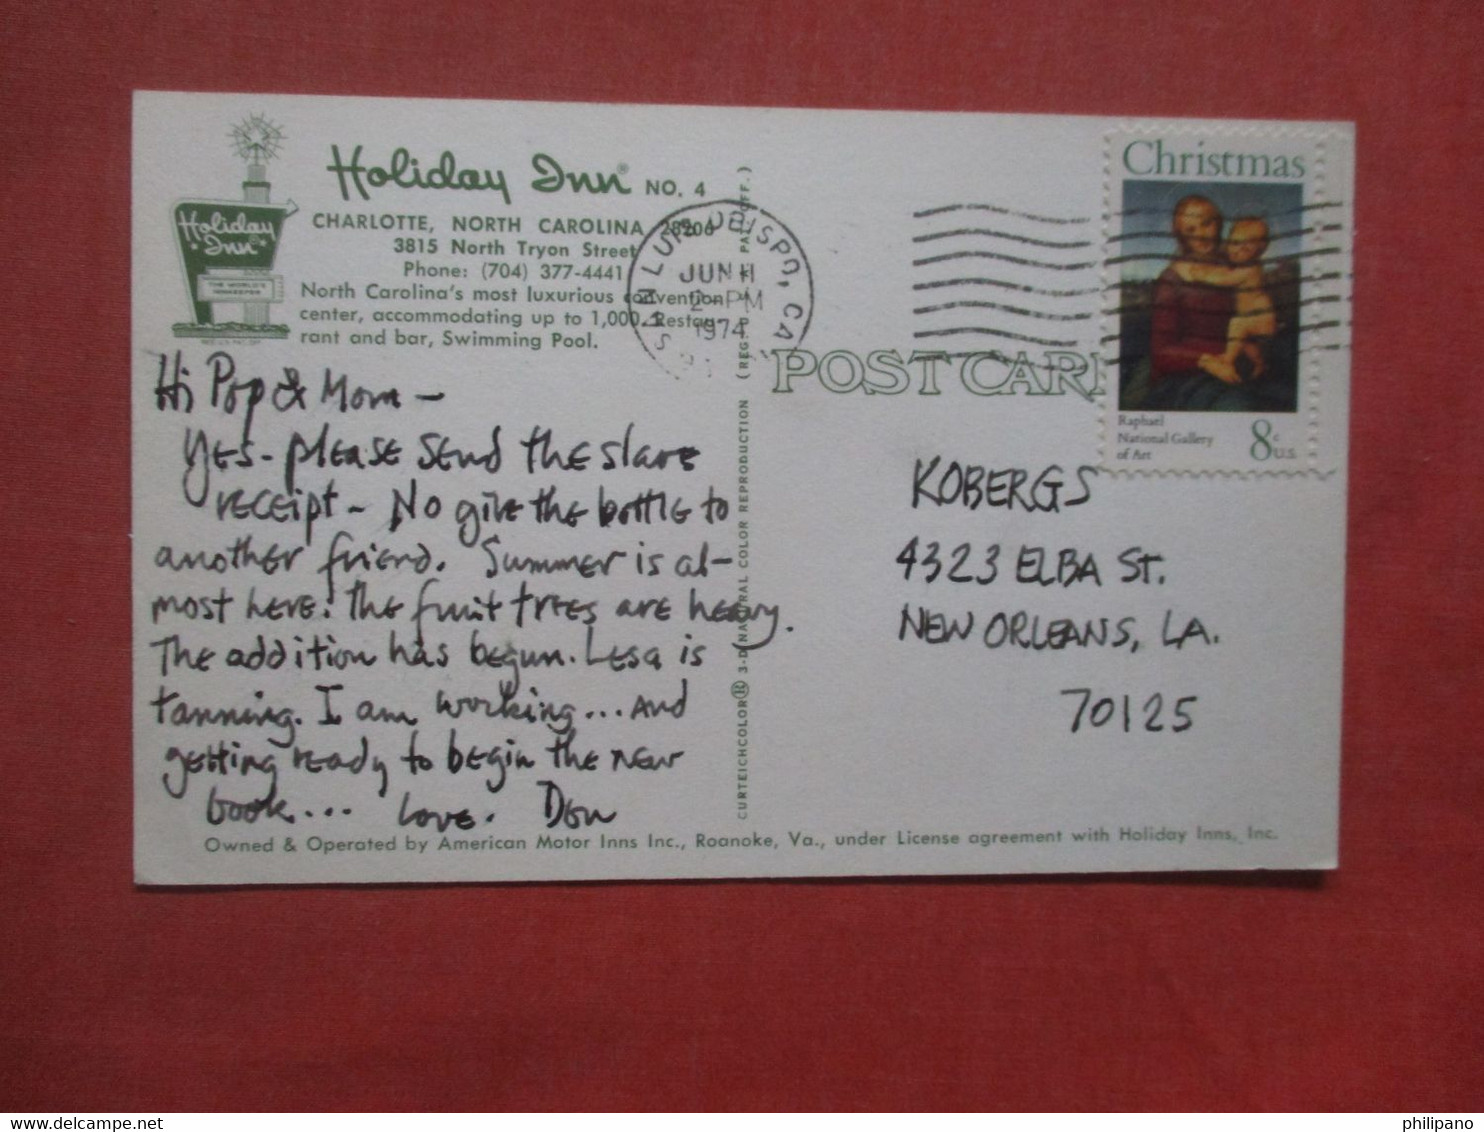 Holiday Inn® NO. 4
CHARLOTTE, NORTH CAROLINA 28206
3815 North Tryon Street
Phone: (704) 377-4441
North Carolina's most luxurious convention
center, accommodating up to 1,000. Restau-
rant and bar, Swimming Pool.
Holiday
Inn
THE WORLD'S
INNKEEPER
SAN LUIS OBISPO, CA
JUN 11
2 PM
1974
Christmas
Raphael
National Gallery
of Art
8c U.S.
POST CAR
Hi Pop & Mom -
Yes - please send the slave
receipt - No give the bottle to
another friend. Summer is al-
most here: the fruit trees are heavy.
The addition has begun. Lesa is
tanning. I am working... and
getting ready to begin the new
book... Love. Don
CURTEICHCOLOR® 3-D NATURAL COLOR REPRODUCTION (REG. U.S. PAT. OFF.)
KOBERGS
4323 ELBA ST.
NEW ORLEANS, LA.
70125
Owned & Operated by American Motor Inns Inc., Roanoke, Va., under License agreement with Holiday Inns, Inc.
philipano